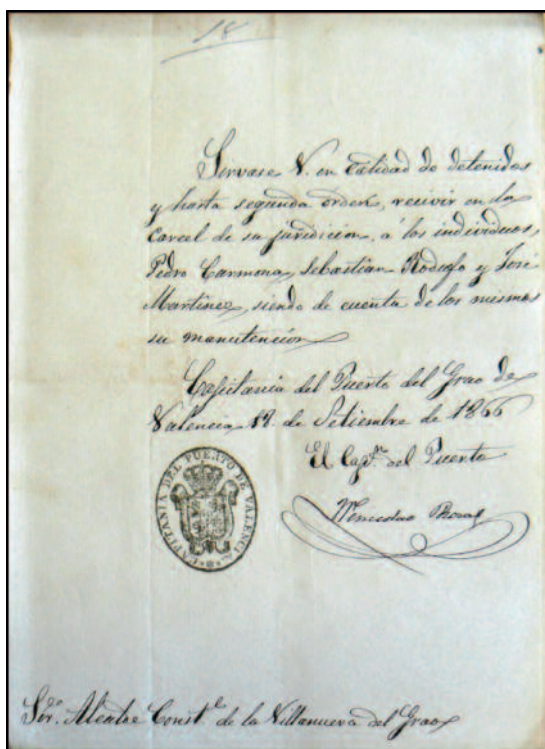 18
Sirvase V. en calidad de detenidos
y hasta segunda orden, recivir en la
Carcel de su juridicion, a los individuos,
Pedro Carmona, Sebastian Rodolfo y José
Martinez, siendo de cuenta de los mismos
su manutencion
Capitania del Puerto del Grao de
Valencia, de Setiembre de 1866
El Cap.n del Puerto
Wenceslao
CAPITANIA DEL PUERTO DE VALENCIA
Sor. Alcalde Const.l de la Villanueva del Grao